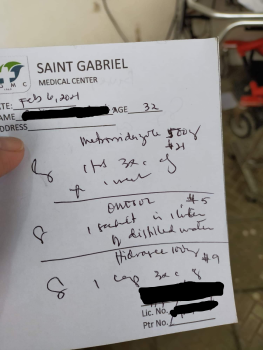 SAINT GABRIEL
MEDICAL CENTER
DATE: Feb 6, 2021
NAME AGE 32
ADDRESS
Metronidazole 500mg
#21
1 tab 3x a
for 1 week
#5
1 sachet in 1 liter
of distilled water
Hidrasec 100mg
#9
1 cap 3x a
Lic. No.
Ptr No.